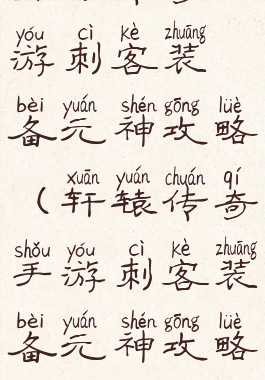 yóu cì kè zhuāng
游刺客装
bèi yuán shén gōng lüè
备元神攻略
xuān yuán chuán qí
（轩辕传奇
shǒu yóu cì kè zhuāng
手游刺客装
bèi yuán shén gōng lüè
备元神攻略